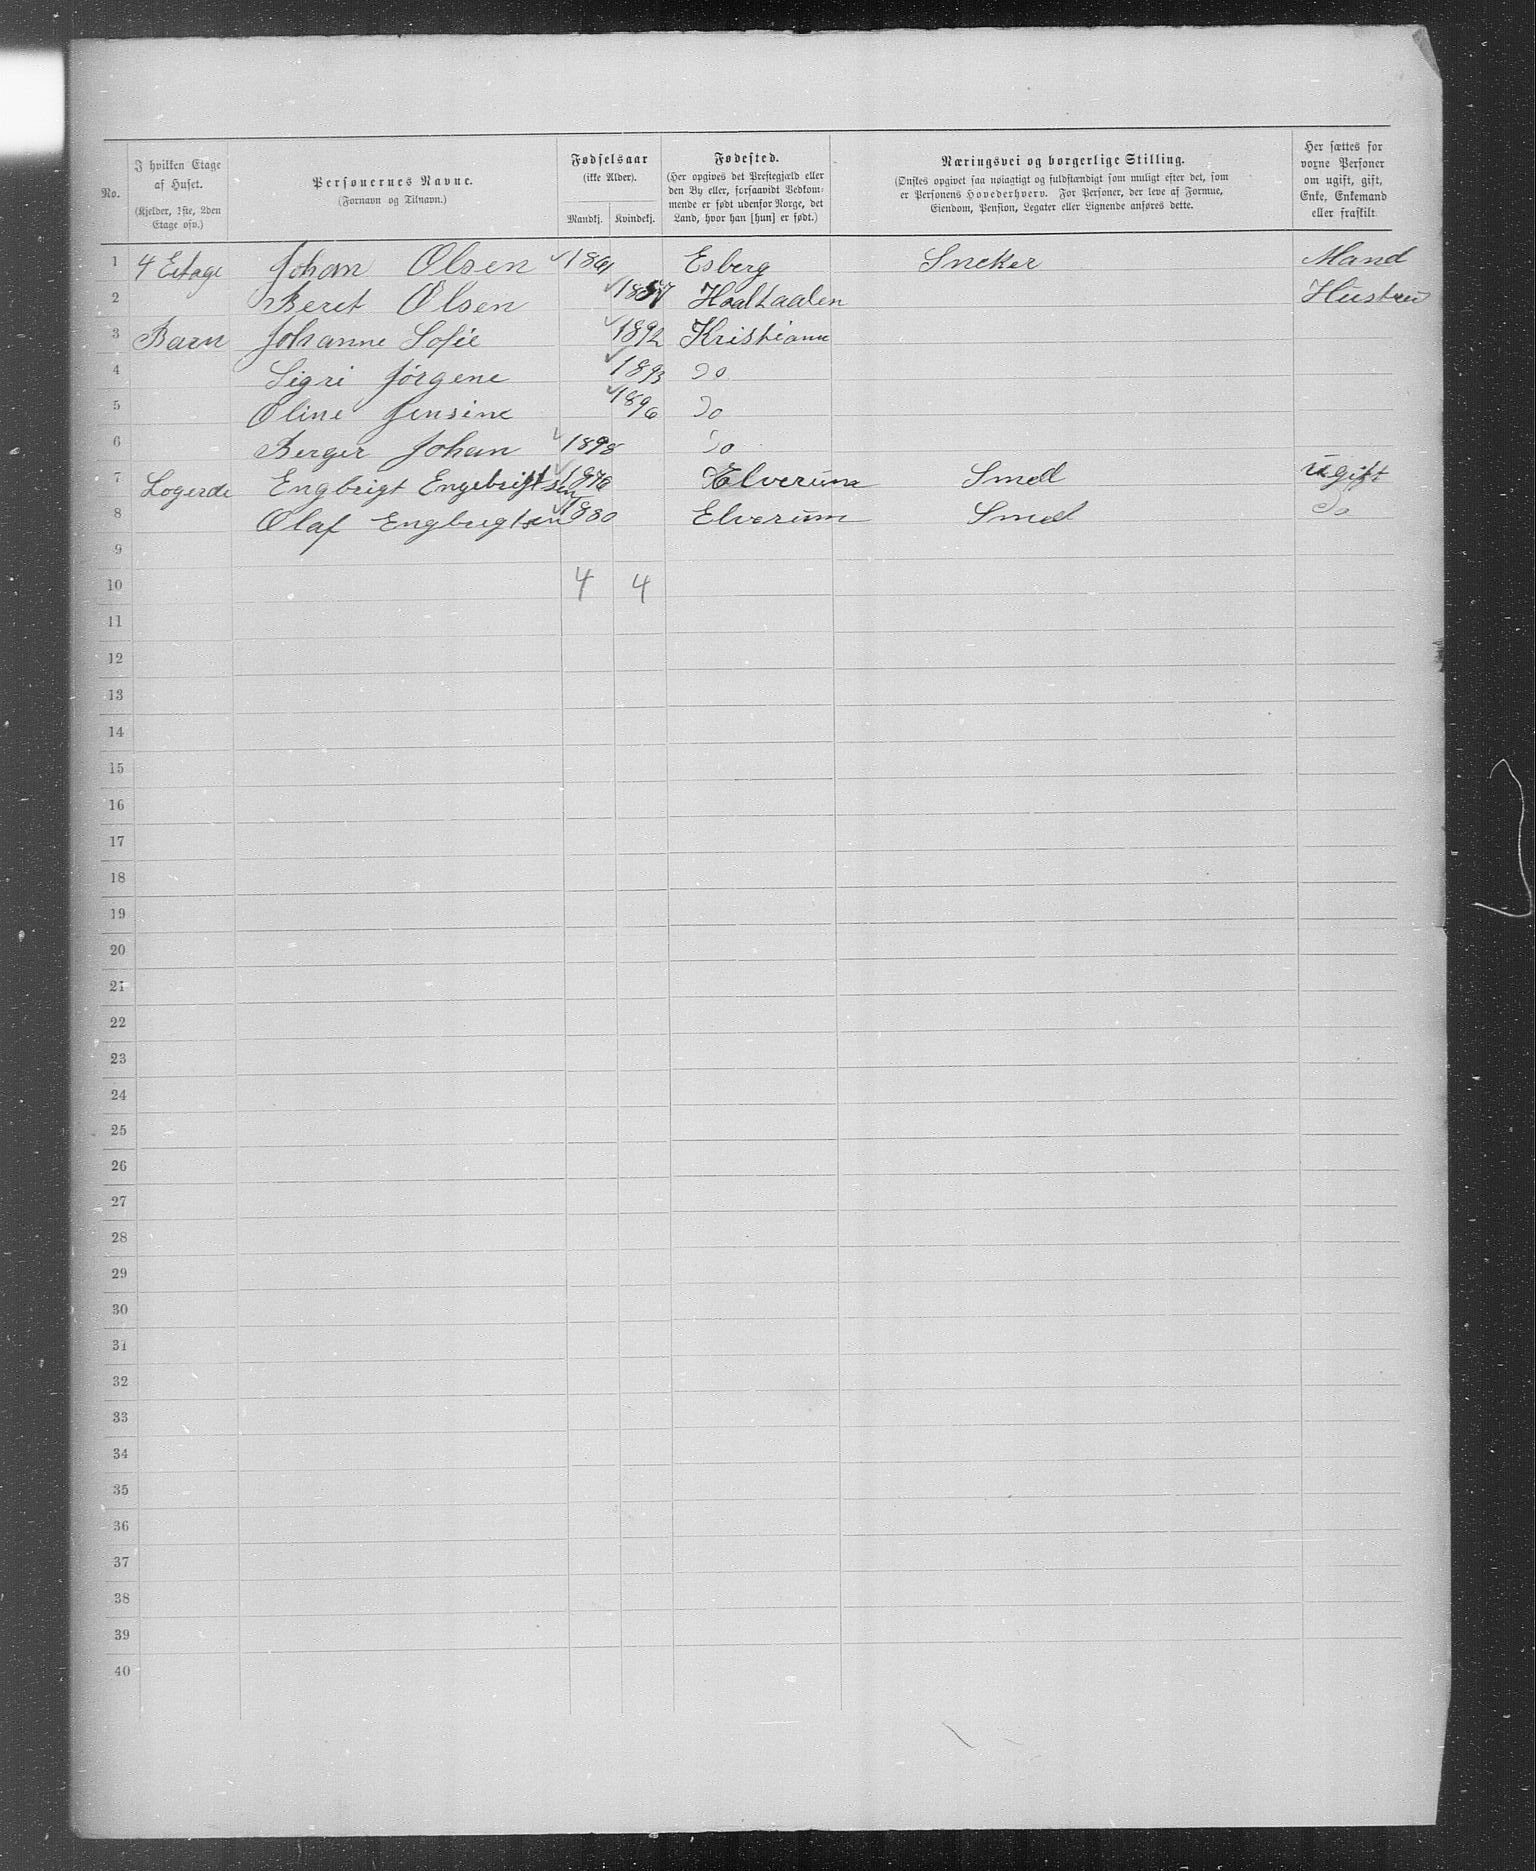 No.
I hvilken Etage af Huset.
(Kjelder, 1ste, 2den Etage osv.)
Personernes Navne.
(Fornavn og Tilnavn.)
Fødselsaar
(ikke Alder).
Mandkj. Kvindekj.
Fødested.
(Her opgives det Prestegjæld eller
den By eller, forsaavidt Vedkom-
mende er født udenfor Norge, det
Land, hvor han [hun] er født.)
Næringsvei og borgerlige Stilling.
(Ønskes opgivet saa nøiagtigt og fuldstændigt som muligt efter det, som
er Personens Hovederhverv. For Personer, der leve af Formue,
Eiendom, Pension, Legater eller Lignende anføres dette.
Her sættes for
voxne Personer
om ugift, gift,
Enke, Enkemand
eller fraskilt
1 4 Etage Johan Olsen 1861 Esberg Sneker Mand
2 Beret Olsen Hoaltaalen Hustru
3 Barn Johanne Sofie 1892 Kristiania
4 Sigri Jørgene 1893 Do
5 Oline Jensine 1896 Do
6 Berger Johan 1898 Do
7 Logerde Engbrigt Engebrigtsen 1876 Elverum Smed Ugift
8 Olaf Engbrigtsen 1880 Elverum Smed Do
9
10 4 4
11
12
13
14
15
16
17
18
19
20
21
22
23
24
25
26
27
28
29
30
31
32
33
34
35
36
37
38
39
40